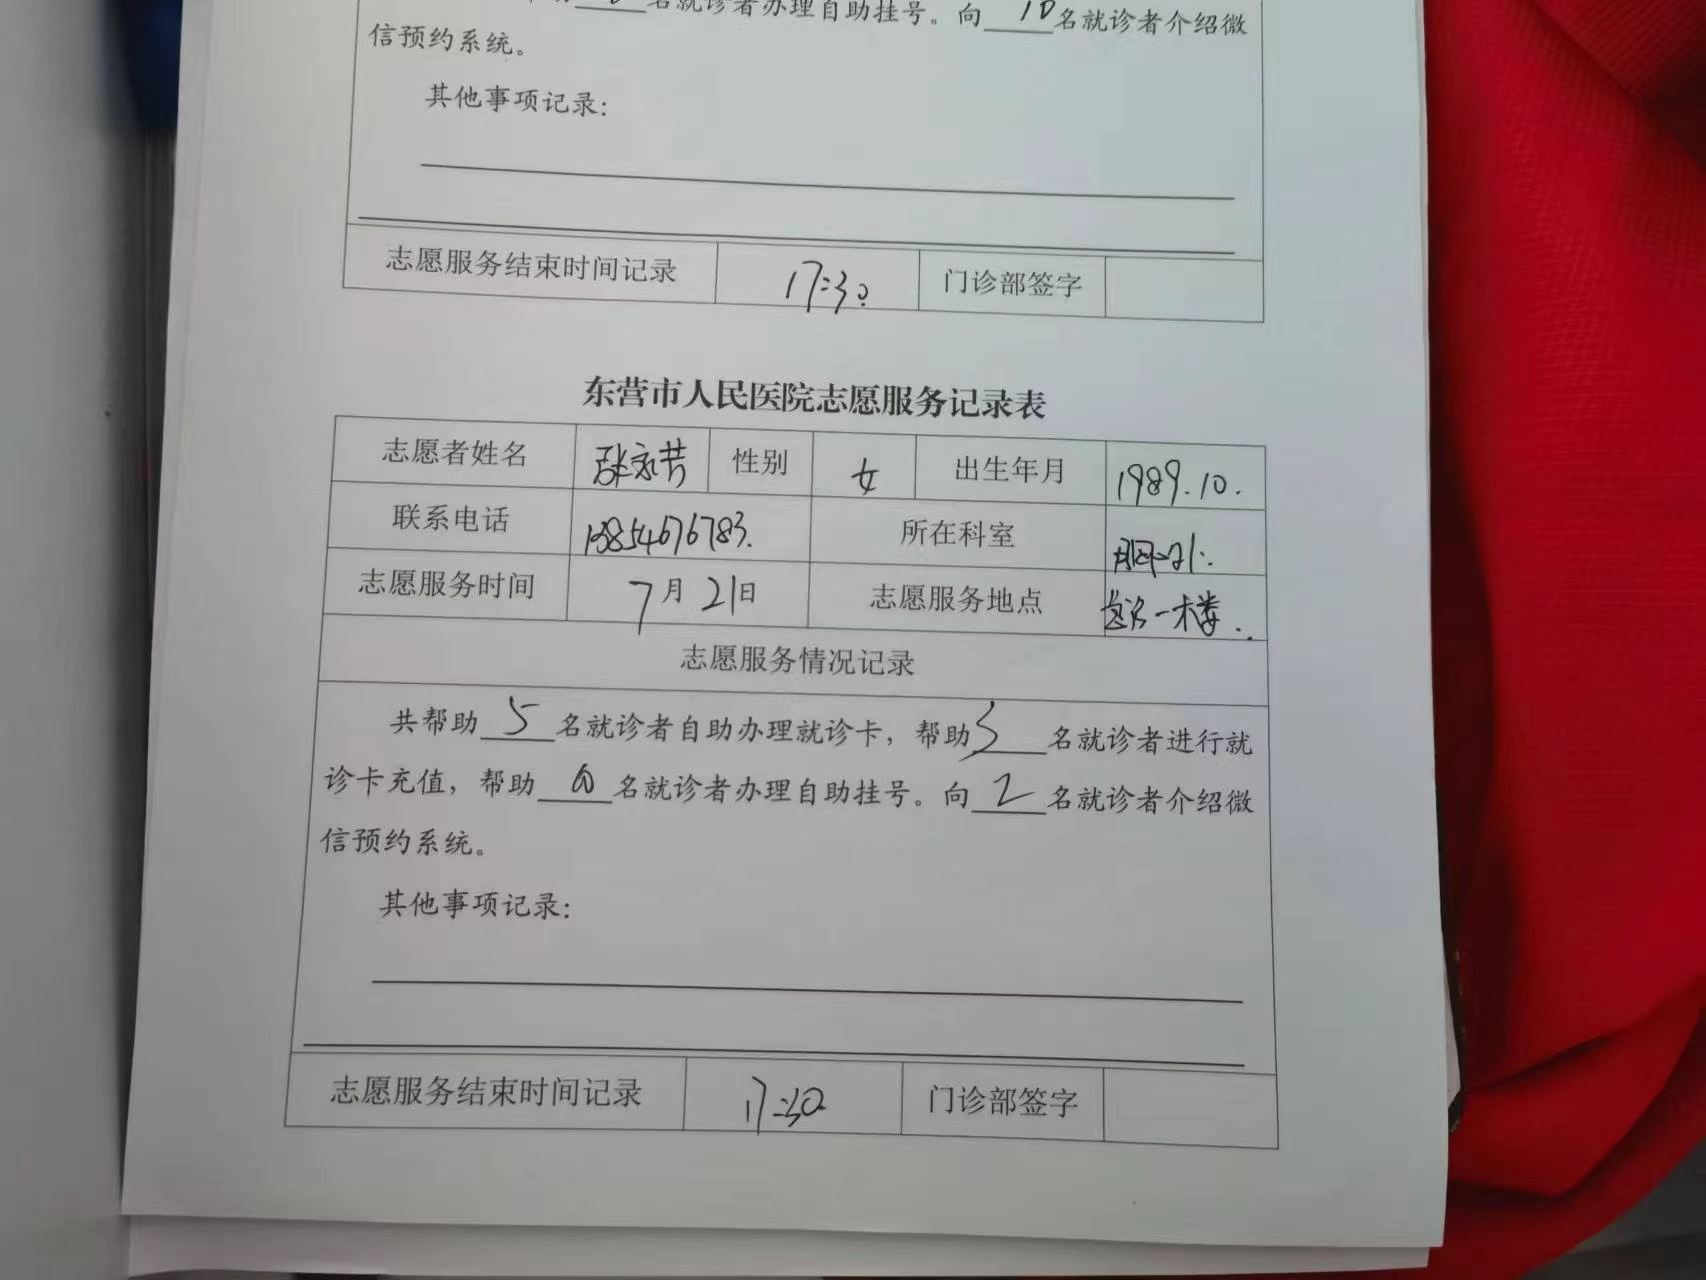 名就诊者办理自助挂号。向 10 名就诊者介绍微
信预约系统。
其他事项记录:
志愿服务结束时间记录 17:30 门诊部签字
东营市人民医院志愿服务记录表
志愿者姓名 性别 女 出生年月 1989.10.
联系电话 13854676783. 所在科室
志愿服务时间 7月21日 志愿服务地点 一楼.
志愿服务情况记录
共帮助 5 名就诊者自助办理就诊卡，帮助 3 名就诊者进行就
诊卡充值，帮助 名就诊者办理自助挂号。向 2 名就诊者介绍微
信预约系统。
其他事项记录:
志愿服务结束时间记录 17:30 门诊部签字